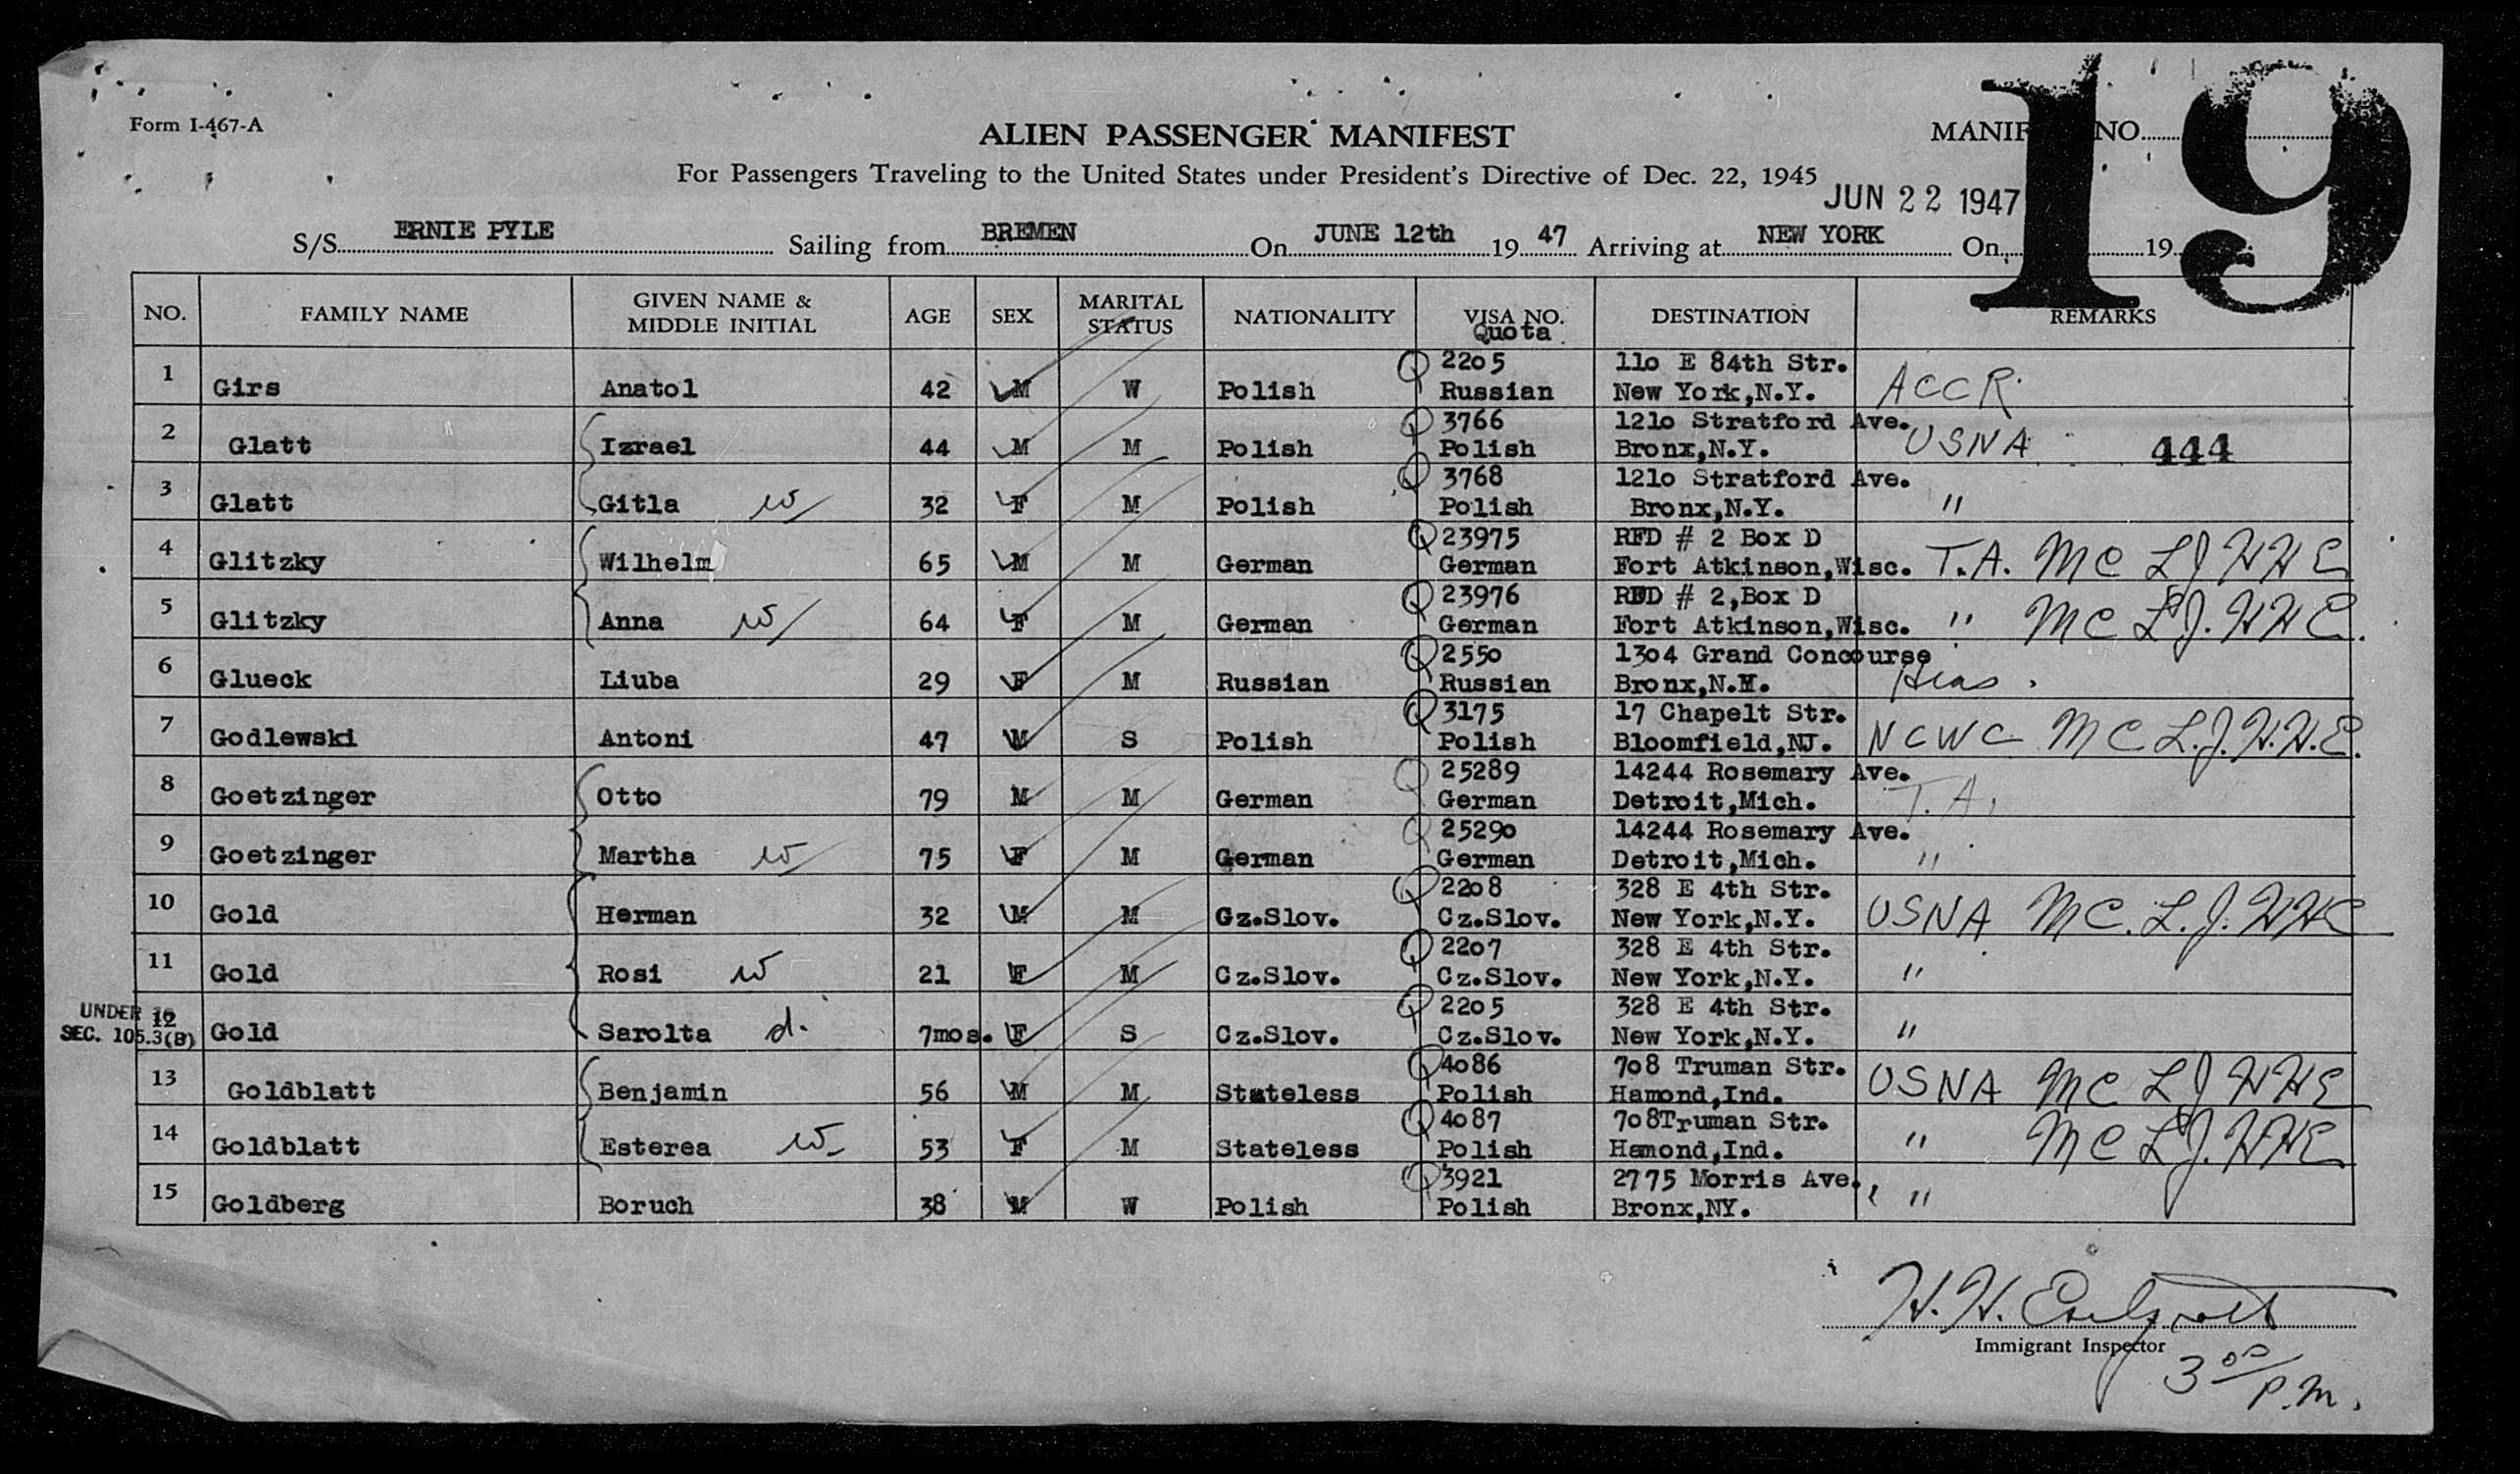 Form I-467-A
ALIEN PASSENGER MANIFEST
MANIF NO.
19
For Passengers Traveling to the United States under President's Directive of Dec. 22, 1945
JUN 22 1947
S/S ERNIE PYLE Sailing from BREMEN On JUNE 12th 19 47 Arriving at NEW YORK On 19
NO. FAMILY NAME GIVEN NAME & MIDDLE INITIAL AGE SEX MARITAL STATUS NATIONALITY VISA NO. Quota DESTINATION REMARKS
Q 2205 110 E 84th Str.
1 Girs Anatol 42 M W Polish Russian New York,N.Y. ACCR.
Q 3766 1210 Stratford Ave.
2 Glatt Izrael 44 M M Polish Polish Bronx,N.Y. USNA 444
Q 3768 1210 Stratford Ave.
3 Glatt Gitla w 32 F M Polish Polish Bronx,N.Y. "
Q 23975 RFD # 2 Box D
4 Glitzky Wilhelm 65 M M German German Fort Atkinson,Wisc. T.A. MC LJ HHE
Q 23976 RFD # 2,Box D
5 Glitzky Anna w 64 F M German German Fort Atkinson,Wisc. " MC LJ. HHE.
Q 2550 1304 Grand Concourse
6 Glueck Liuba 29 F M Russian Russian Bronx,N.Y. Hias.
Q 3175 17 Chapelt Str.
7 Godlewski Antoni 47 M S Polish Polish Bloomfield,NJ. NCWC MC L.J.H.H.E.
Q 25289 14244 Rosemary Ave.
8 Goetzinger Otto 79 M M German German Detroit,Mich. T.A.
Q 25290 14244 Rosemary Ave.
9 Goetzinger Martha w 75 F M German German Detroit,Mich. "
Q 2208 328 E 4th Str.
10 Gold Herman 32 M M Gz.Slov. Cz.Slov. New York,N.Y. USNA MC. L.J. HHE
Q 2207 328 E 4th Str.
11 Gold Rosi w 21 F M Cz.Slov. Cz.Slov. New York,N.Y. "
UNDER 16 Q 2205 328 E 4th Str.
SEC. 105.3(B) 12 Gold Sarolta d. 7mos. F S Cz.Slov. Cz.Slov. New York,N.Y. "
Q 4086 708 Truman Str.
13 Goldblatt Benjamin 56 M M Stateless Polish Hamond,Ind. USNA MC LJ HHE
Q 4087 708Truman Str.
14 Goldblatt Esterea w 53 F M Stateless Polish Hamond,Ind. " MC LJ. HHE
Q 3921 2775 Morris Ave.,
15 Goldberg Boruch 38 M W Polish Polish Bronx,NY. "
H. H.
Immigrant Inspector
3 00 P.M.